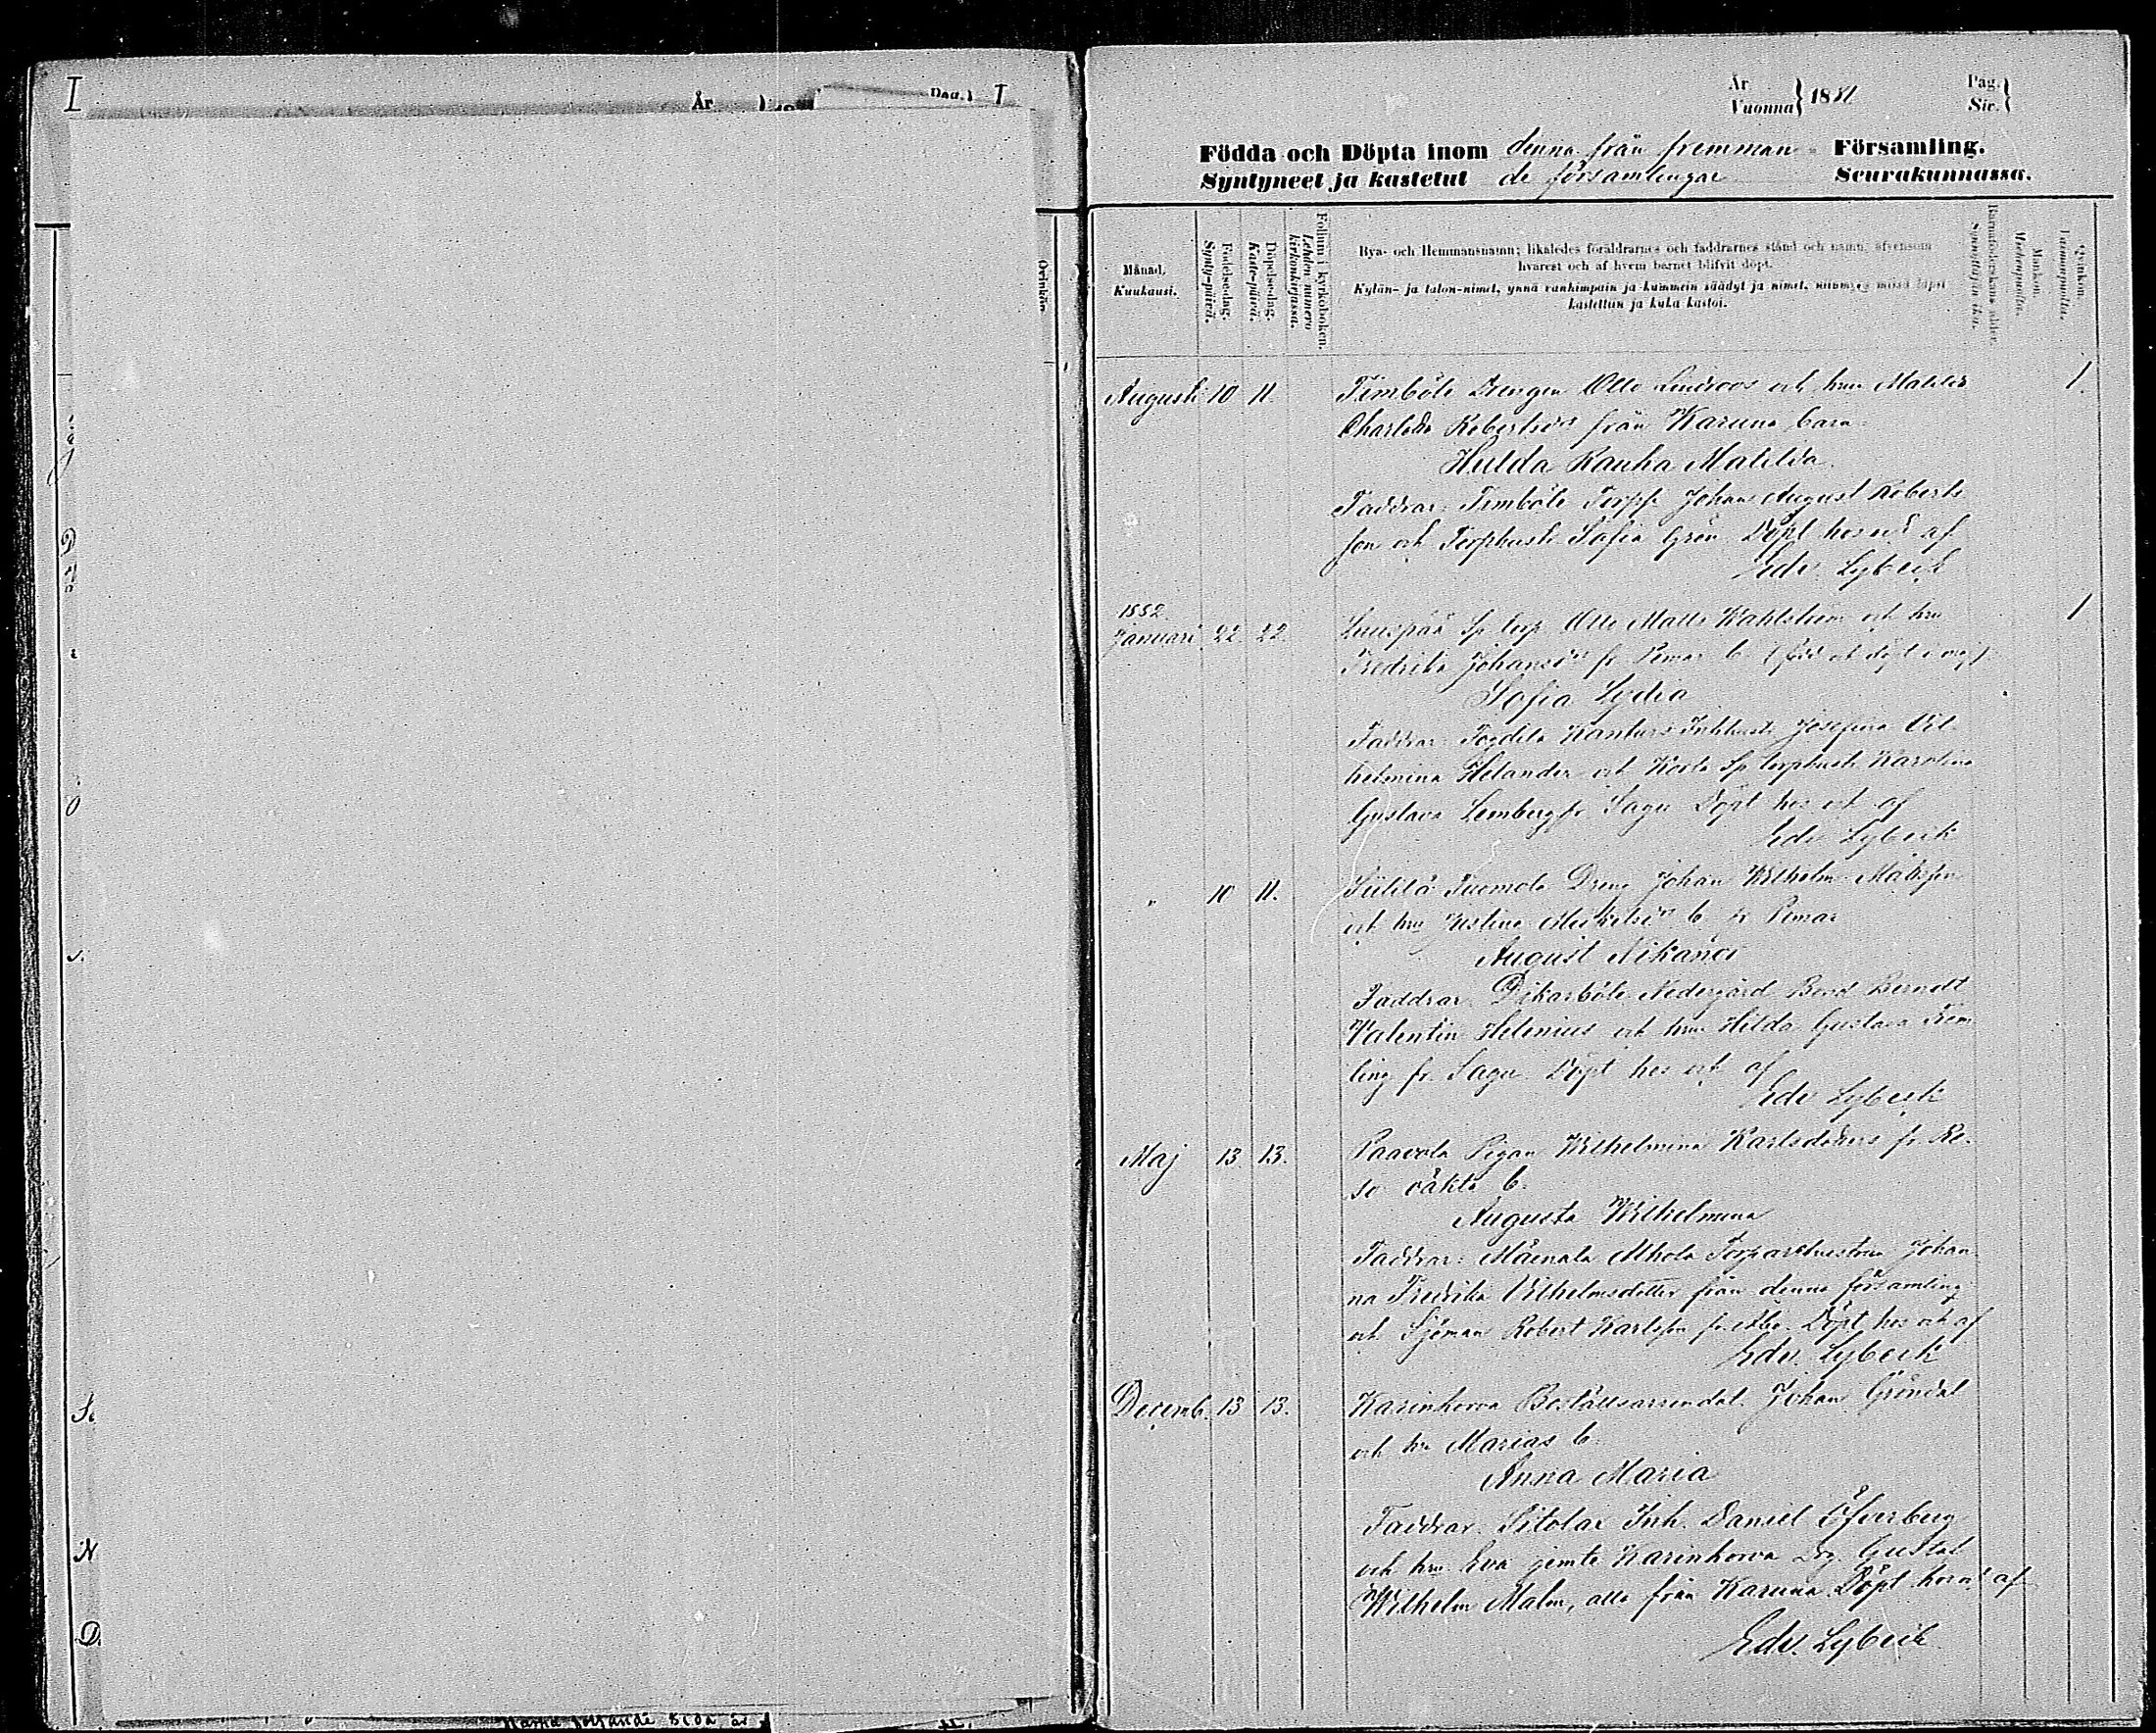 I
År
Dag.) I
År
Vuonna } 1881
Pag.
Siv. }
Födda och Döpta inom denna från fremman- Församling.
Syntyneet ja kastetut de församlingar Seurakunnassa.
Månad.
Kuukausi.
Födelse-dag.
Synty-päivä.
Döpelse-dag.
Kaste-päivä.
Folium i kyrkoboken.
Lehden numero kirkonkirjassa.
Bya- och Hemmansnamn; likaledes föräldrarnes och faddrarnes stånd och namn, äfvensom
hvarest och af hvem barnet blifvit döpt.
Kylän- ja talon-nimet, ynnä vanhimpain ja kummein säädyt ja nimet, niinmyös missä lapsi
kastettiin ja kuka kastoi.
Barnaföderskans ålder.
Synnyttäjän ikä.
Mankön.
Miehenpuolta.
Qvinkön.
Vaimonpuolta.
Augusti 10 11. Timböle Drengen Otto Lindroos och hus Matilda 1
Charlotta Robertsdr från Karuna barn
Hulda Rauha Matilda.
Faddrar: Timböle Torpp. Johan August Roberts
son och Torphust. Sofia Grön Döpt hos nd af
Edv. Lybeck
1882.
Januari 22 22. Sp torp. Otto Matts Wahlström och hus 1
Fredrika Johansdr fr. Pemar b.
Sofia Lydia
Faddrar: Inhhust. Josefina Vil-
helmina Helander och Sp torphust. Karolina
Gustava Lemberg fr Sagu Döpt hos och af
Edv Lybeck
" 10 11. Tuomola Dreng Johan Wilhelm Matsson
och hus Justina b. fr Pemar
August Nikanor
Faddrar. Dikarböle Nedergård Bond Berndt
Valentin Helenius och hus Hilda Gustava
ling fr. Sagu. Döpt hos och af
Edv Lybeck
Maj 13. 13. Paavola Pigan Wilhelmina Karlsdotters fr. Re-
so oäkta b.
Augusta Wilhelmina
Faddrar: Torparehustrun Johan-
na Fredrika Vilhelmsdotter från denna församling
och Sjöman Robert Karlsson fr. Åbo. Döpt hos och af
Edv. Lybeck
Decemb. 13 13. Karinkorva Boställsarrendat. Johan Gröndal
och hus Marias b.
Anna Maria
Faddrar. Sitolax Inh. Daniel Öfverberg
och hus Eva jemte Karinkorva Drg. Gustaf
Wilhelm Malm, alla från Karuna. Döpt af
Edv. Lybeck
följande sida är